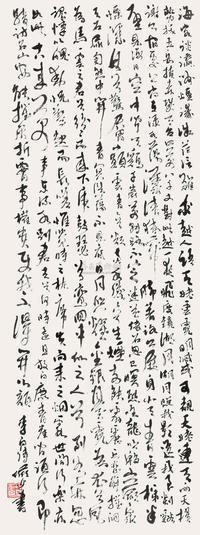 海客談瀛洲煙濤微茫信難求越人語天姥雲霓明滅或可睹天姥連天向天橫
勢拔五嶽掩赤城天台四萬八千丈對此欲倒東南傾我欲因之夢吳越一夜飛度鏡湖月湖月照我影送我至剡溪
謝公宿處今尚在淥水蕩漾清猿啼腳著謝公屐身登青雲梯半
壁見海日空中聞天雞千巖萬轉路不定迷花倚石忽已暝熊咆龍吟殷巖泉
慄深林兮驚層巔雲青青兮欲雨水澹澹兮生煙列缺霹靂丘巒崩摧洞
天石扉訇然中開青冥浩蕩不見底日月照耀金銀臺霓為衣兮風
為馬雲之君兮紛紛而來下虎鼓瑟兮鸞回車仙之人兮列如麻忽
魂悸以魄動怳驚起而長嗟惟覺時之枕席失向來之煙霞世間行樂亦
如此古來萬事東流水別君去兮何時還且放白鹿青崖間須行即
騎訪名山安能摧眉折腰事權貴使我不得開心顏 李白詩 書